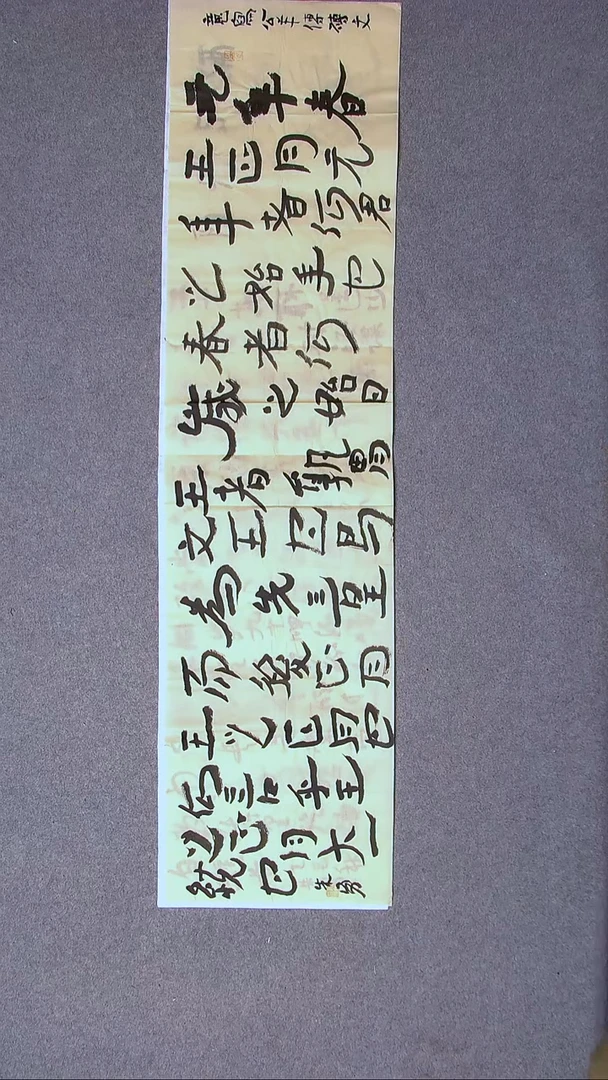 公羊傳磚文
元年春
王正月元
年者何君
之始年也
春者何
歲之始
王者孰謂
文王也曷
為先言王
而後正月
王之正月也
何言乎王
之正月大一
統也